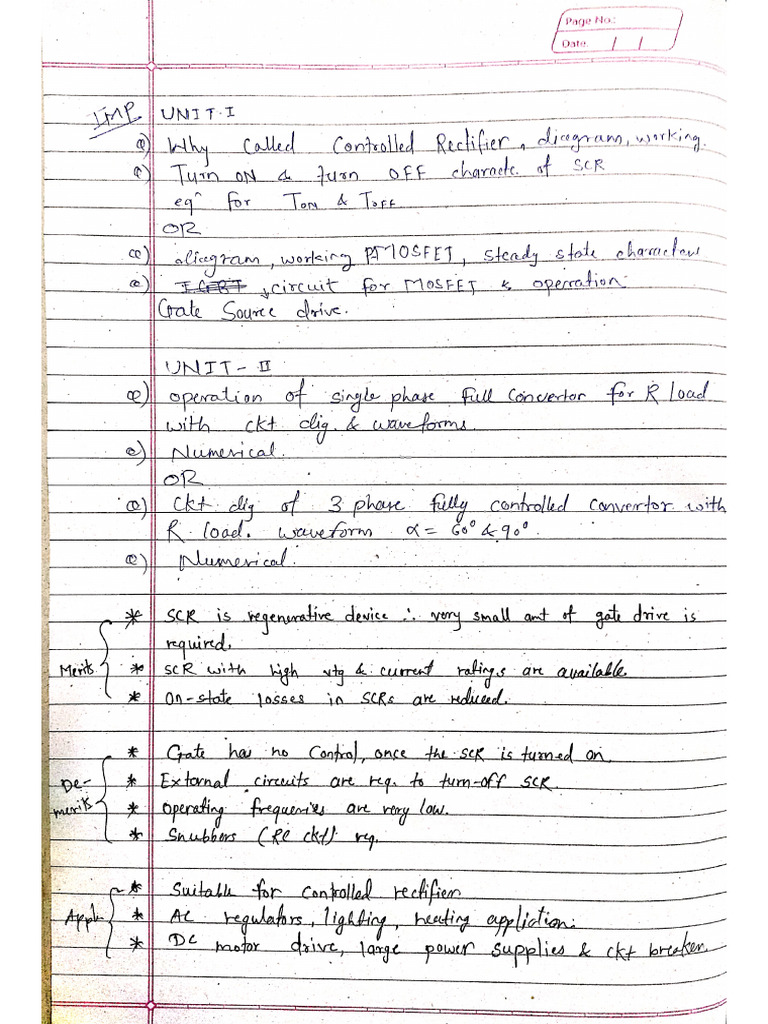 Page No.:
Date. / /
IMP UNIT-I
Q) Why Called Controlled Rectifier, diagram, working.
Q) Turn ON & turn OFF charactc. of SCR
eqⁿ for TON & TOFF
OR
Q) diagram, working MOSFET, steady state characters
Q) circuit for MOSFET & operration
Gate Source drive.
UNIT-II
Q) operation of single phase full Convertor for R load
with ckt dig. & waveforms.
Q) Numerical.
OR
Q) Ckt dig of 3 phase fully controlled convertor with
R load. waveform α = 60° & 90°.
Q) Numerical.
* SCR is regenerative device ∴ very small amt of gate drive is
required.
Merits * SCR with high vtg & current ratings are available.
* On-state losses in SCRs are reduced.
* Gate has no Control, once the SCR is turned on.
De- * External circuits are req. to turn-off SCR.
merits * Operating frequencies are very low.
* Snubbers (RC ckt) req.
* Suitable for controlled rectifier
Appln * AC regulators, lighting, heating appliction.
* DC motor drive, large power supplies & ckt breaker.